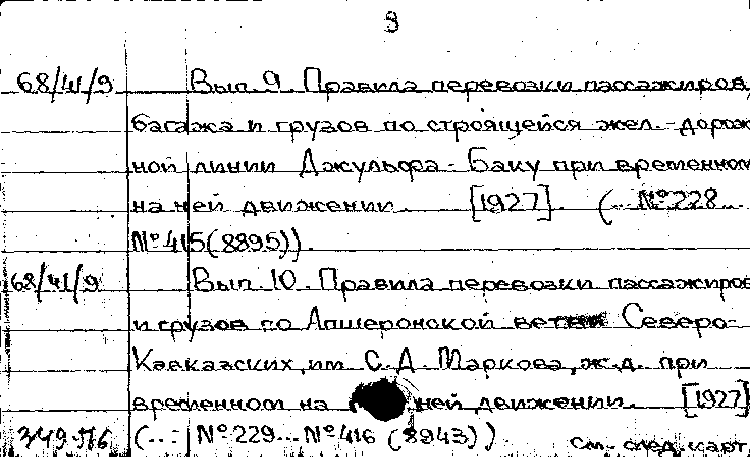 9
68/41/9 Вып. 9. Правила перевозки пассажиров,
багажа и грузов по строящейся жел.-дорож
ной линии Джульфа-Баку при временном
на ней движении. [1927]. (...№228...
№415(8895)).
68/41/9 Вып. 10. Правила перевозки пассажиров
и грузов по Апшеронской ветви Северо-
Кавказских, им. С.Д. Маркова, ж.д. при
временном на ней движении. [1927]
(...: №229...№416 (8943)). см. след. карт.